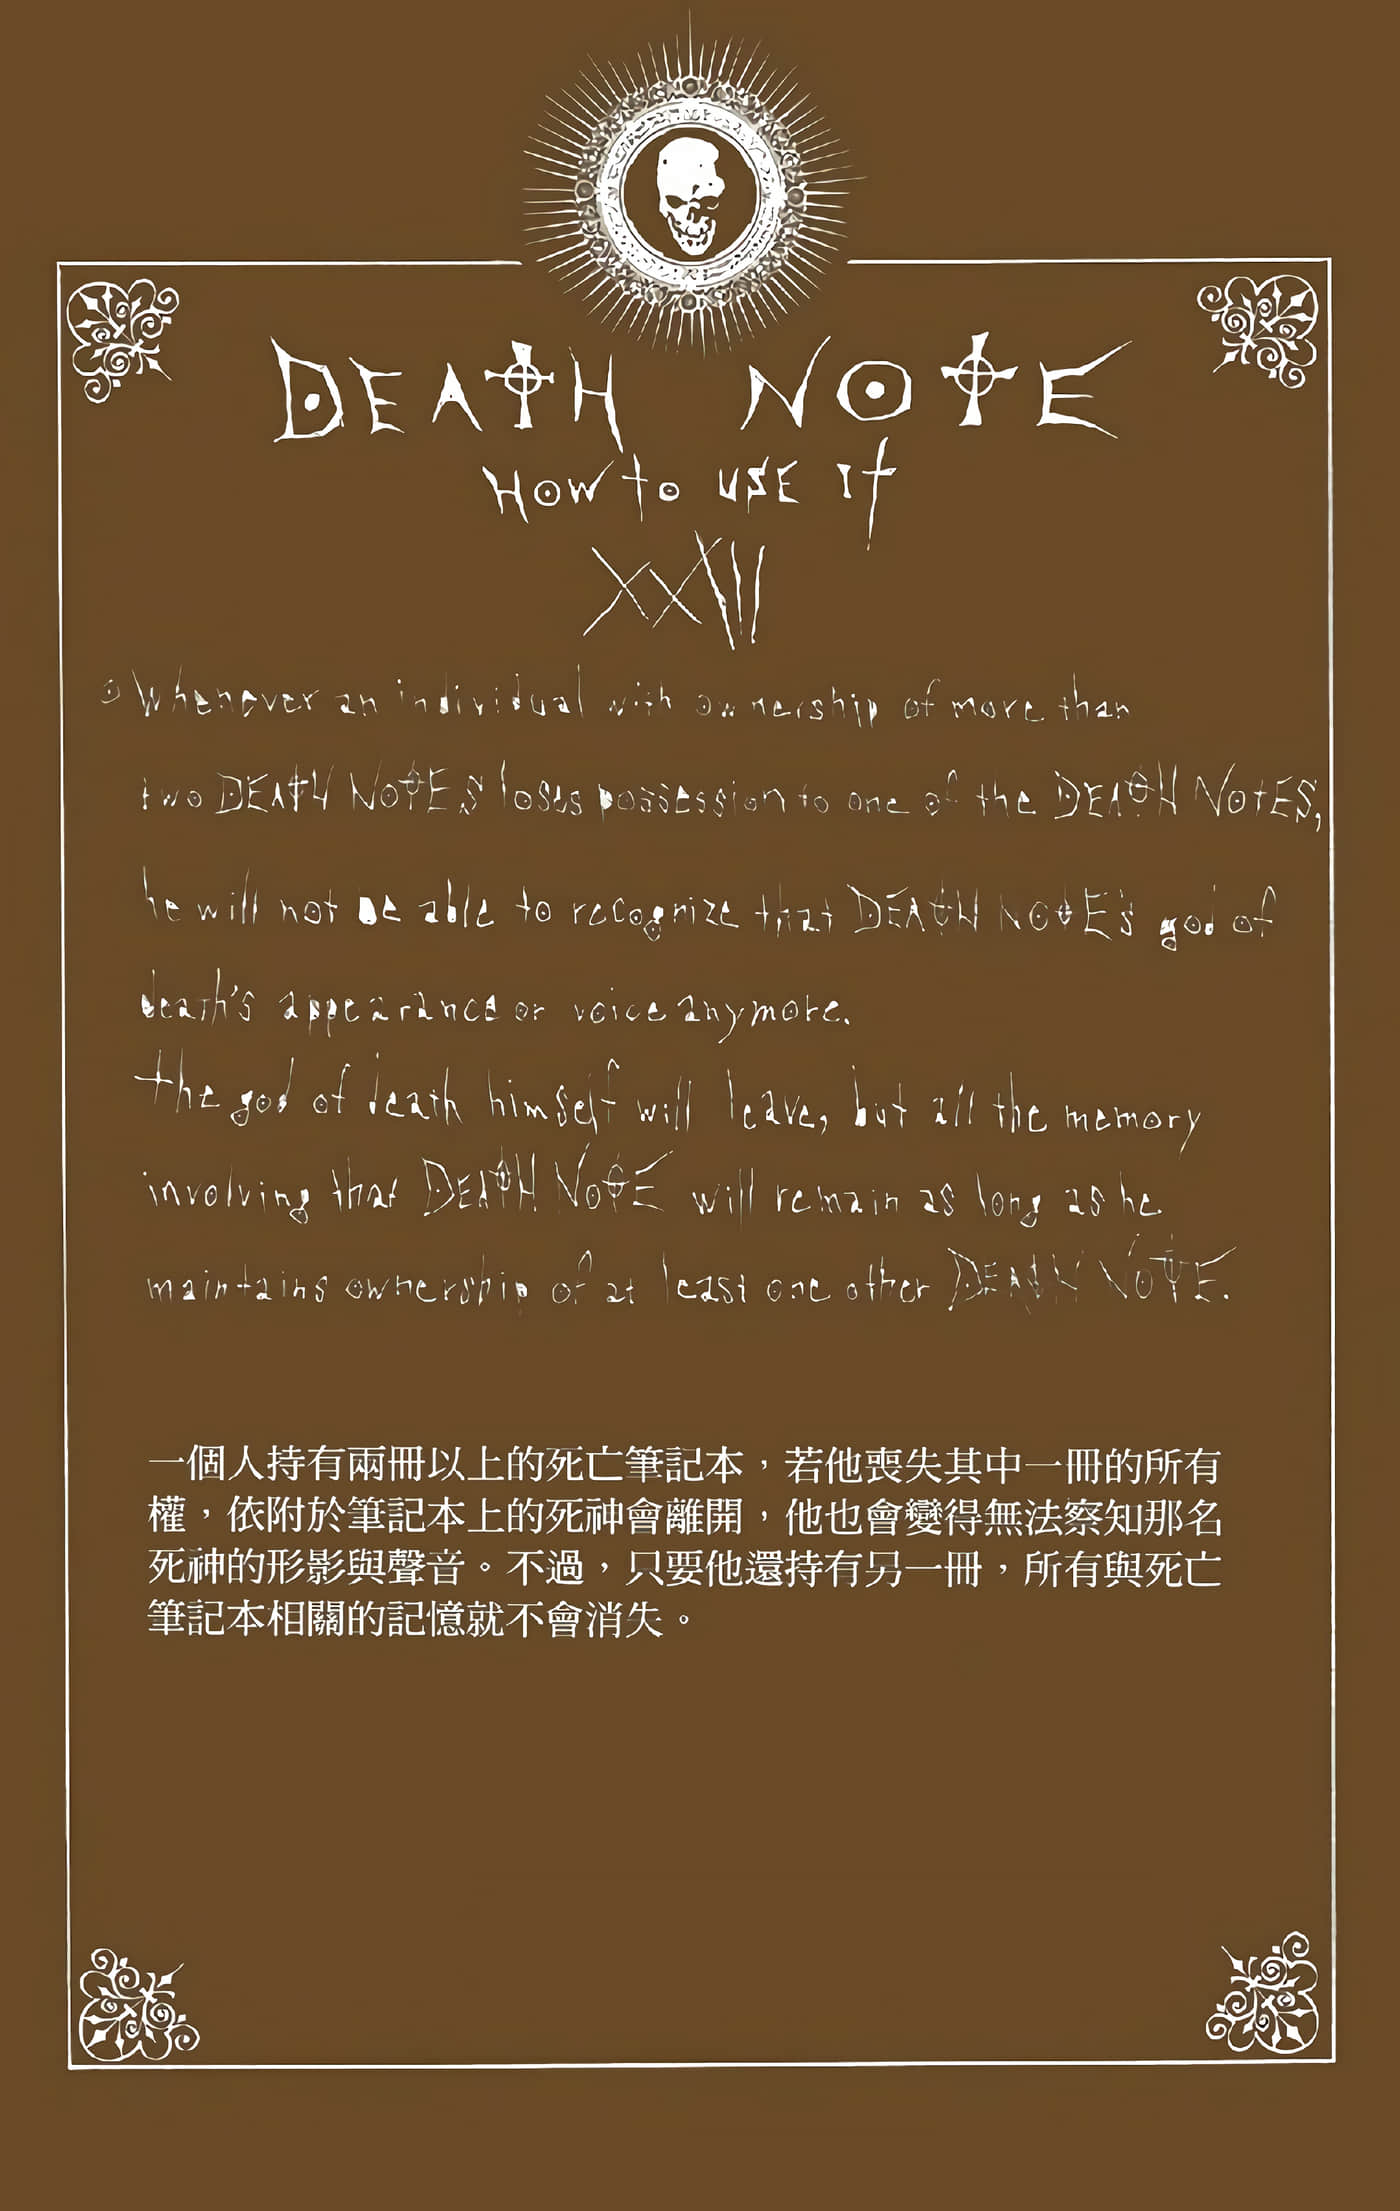 DEATH NOTE
HOW to USE It
XXVII
Whenever an individual with ownership of more than
two DEATH NOTES loses possession to one of the DEATH NOTES,
he will not be able to recognize that DEATH NOTE's god of
death's appearance or voice anymore.
the god of death himself will leave, but all the memory
involving that DEATH NOTE will remain as long as he
maintains ownership of at least one other DEATH NOTE.
一個人持有兩冊以上的死亡筆記本，若他喪失其中一冊的所有
權，依附於筆記本上的死神會離開，他也會變得無法察知那名
死神的形影與聲音。不過，只要他還持有另一冊，所有與死亡
筆記本相關的記憶就不會消失。